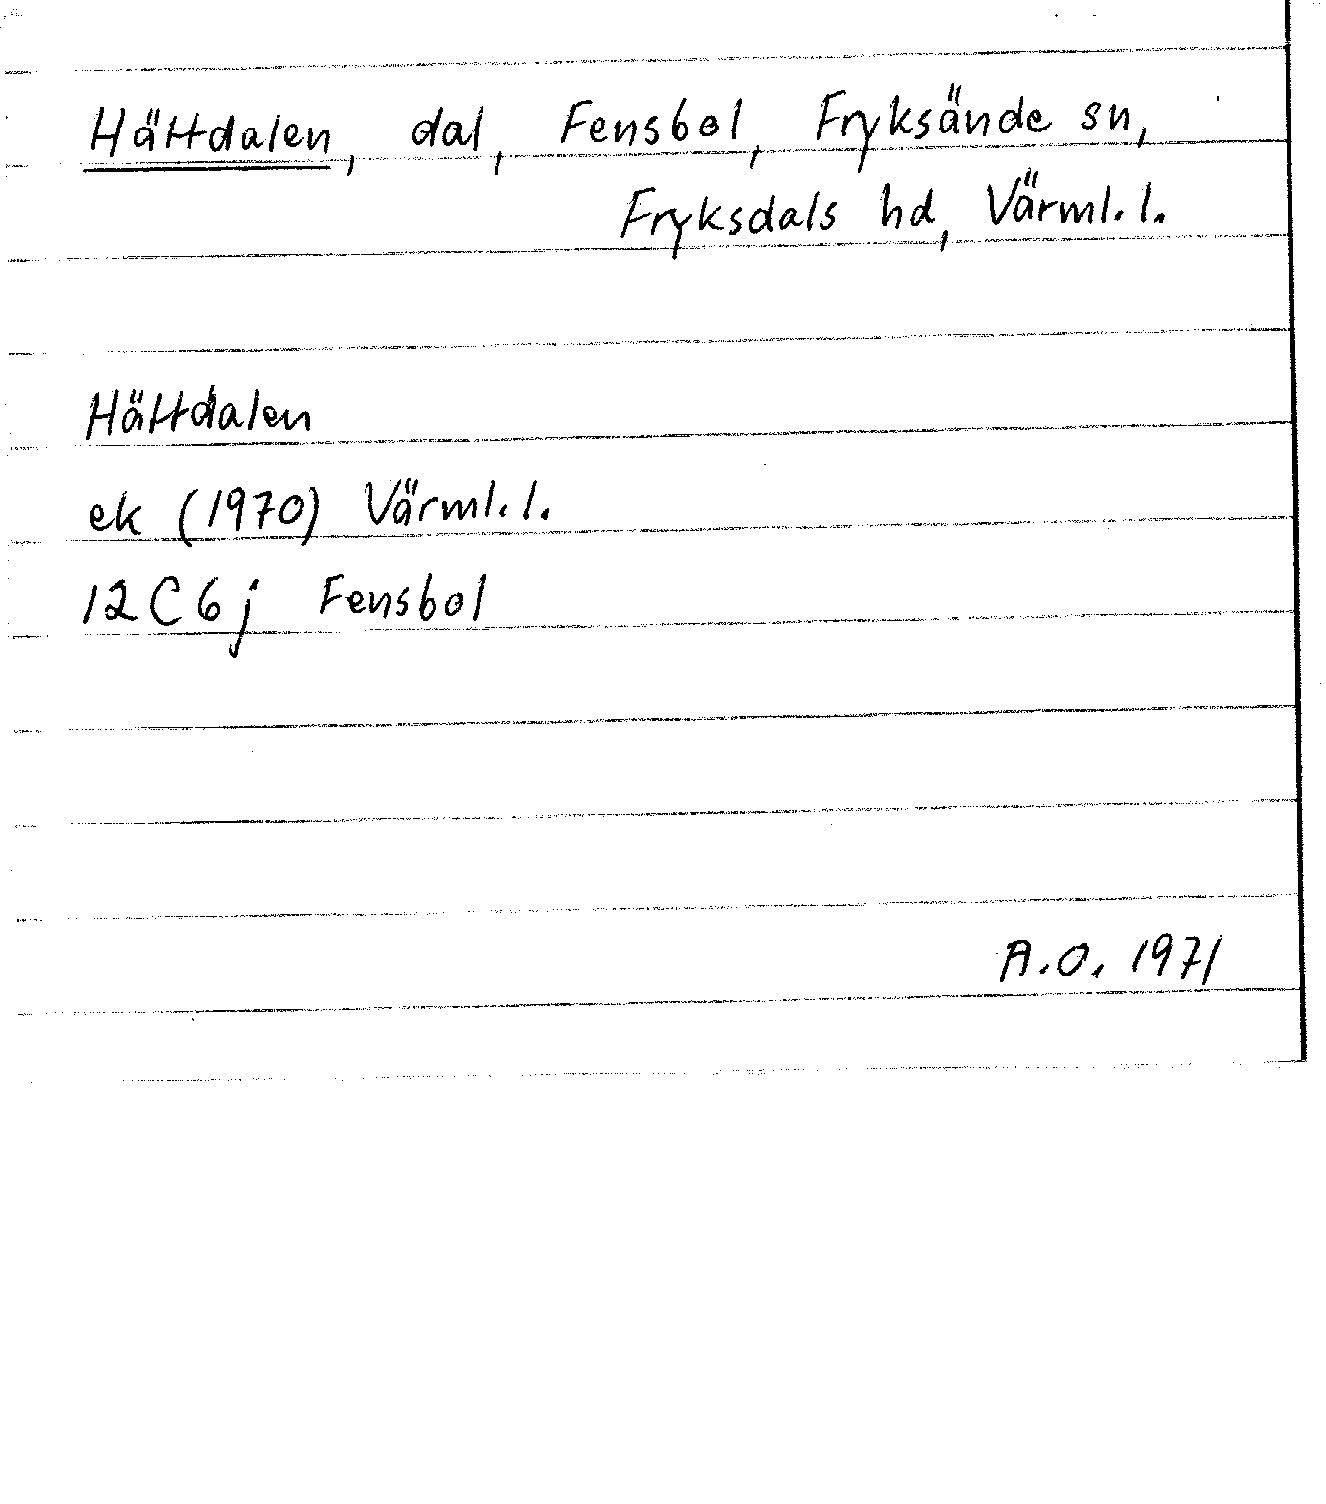 Hättdalen, dal, Fensbol, Fryksände sn,
Fryksdals hd, Värml. l.
Hättdalen
ek (1970) Värml. l.
12C 6j Fensbol
A.O. 1971